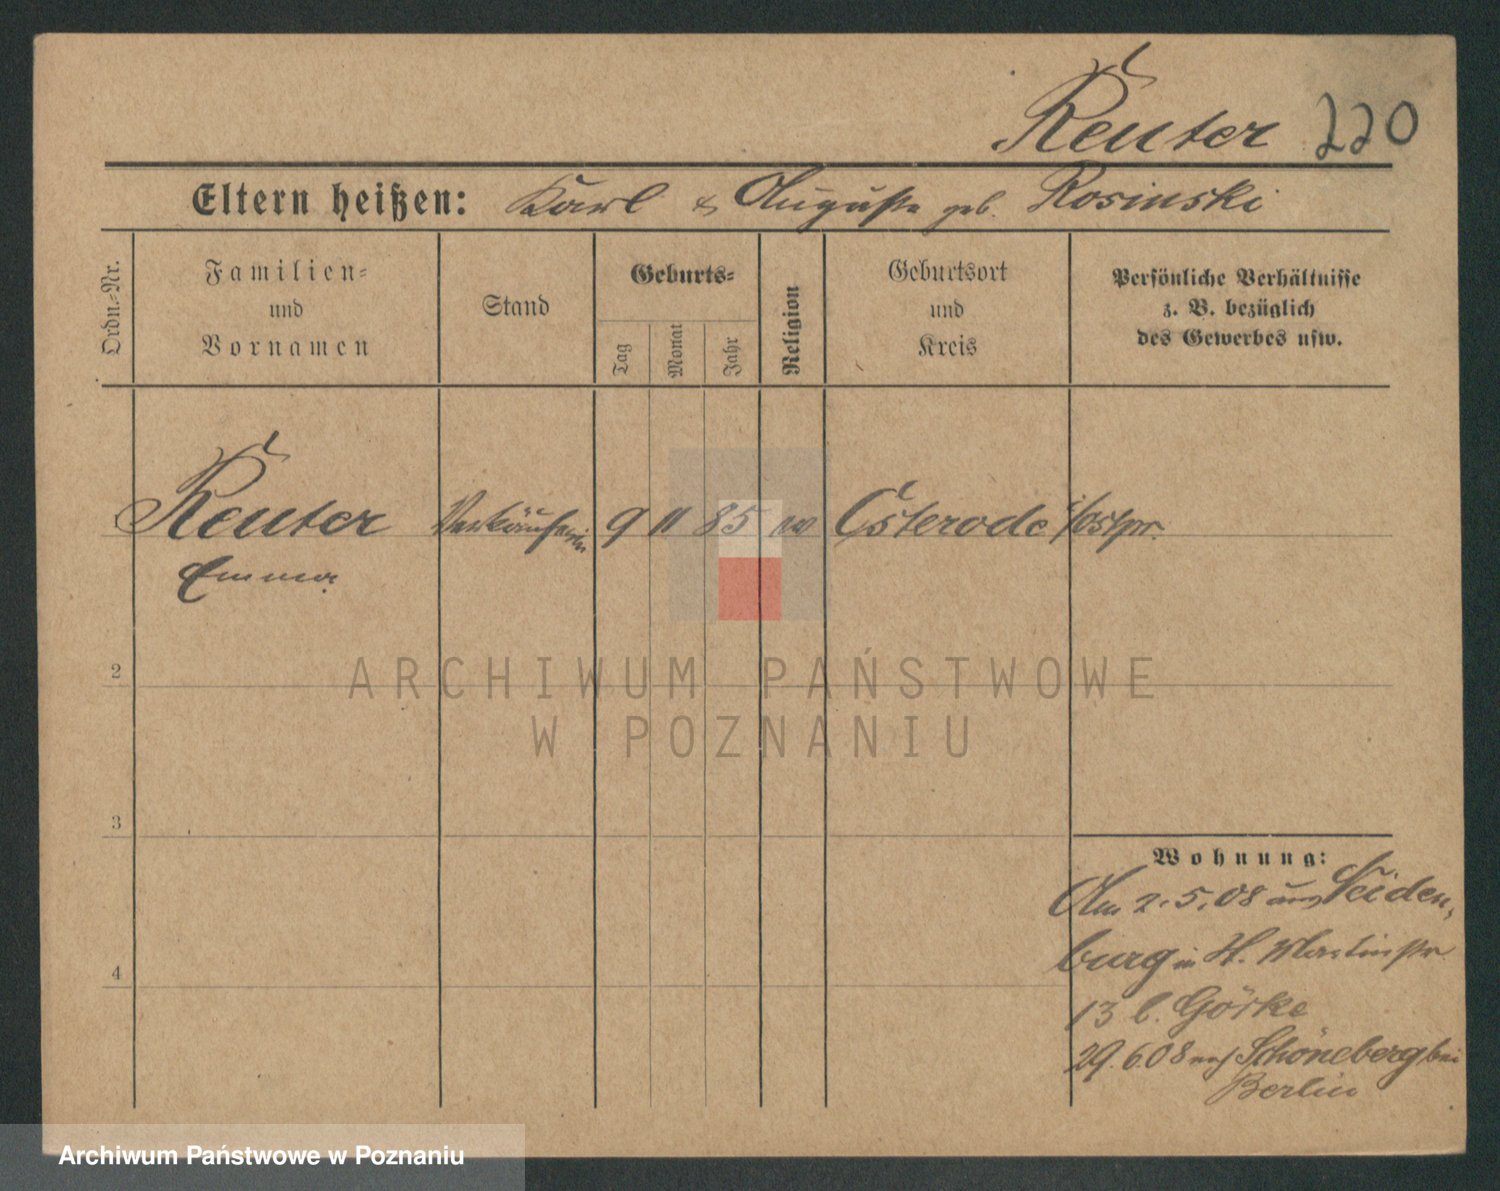 Reuter 220
Eltern heißen: Karl & Auguste geb. Rosinski
Ordn.-Nr.
Familien-
und
Vornamen
Stand
Geburts-
Tag
Monat
Jahr
Religion
Geburtsort
und
Kreis
Persönliche Verhältnisse
z. B. bezüglich
des Gewerbes usw.
1 Reuter Verkäuferin 9 11 85 Osterode i/ostpr.
Emma
2
3
4
Wohnung:
Am 2.5.08 aus Neiden-
burg in H. Martinstr
13 b. Görke
29.6.08 nach Schöneberg bei
Berlin
ARCHIWUM PAŃSTWOWE
W POZNANIU
Archiwum Państwowe w Poznaniu